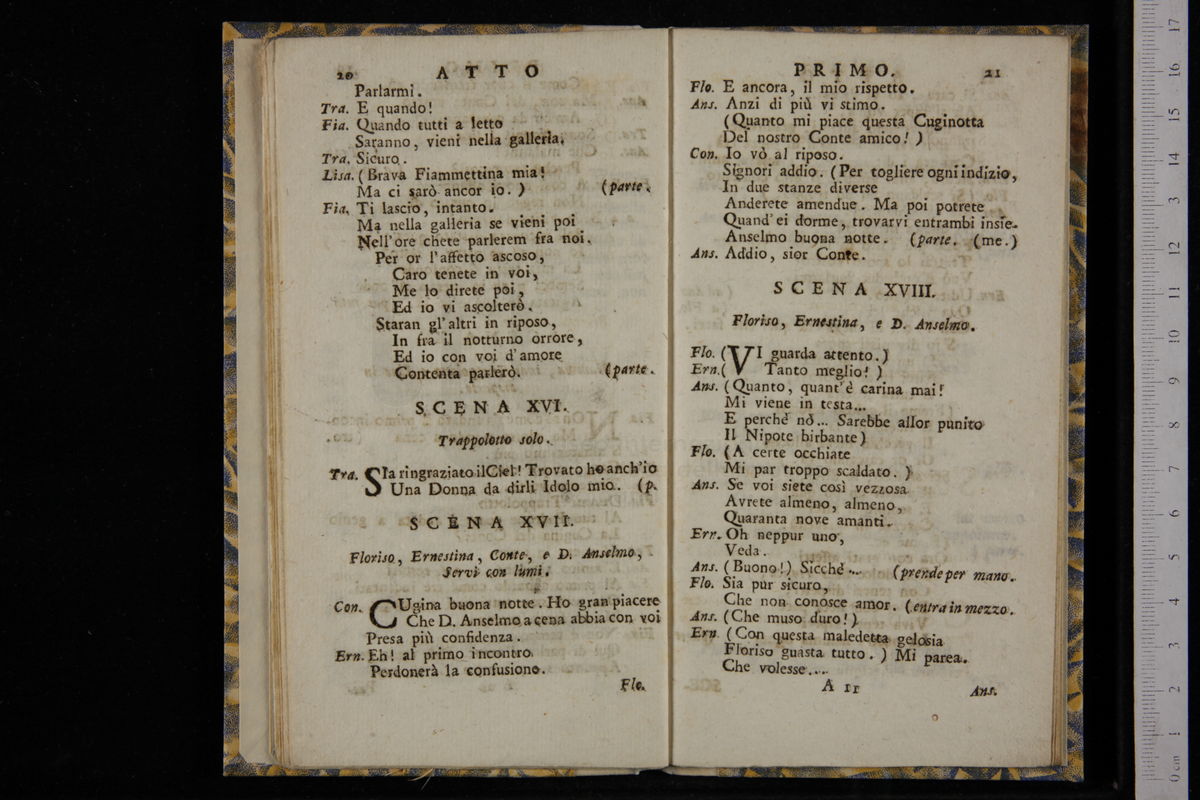 20 ATTO
Parlarmi.
Tra. E quando!
Fia. Quando tutti a letto
Saranno, vieni nella galleria.
Tra. Sicuro.
Lisa. (Brava Fiammettina mia!
Ma ci sarò ancor io. ) (parte.
Fia. Ti lascio, intanto.
Ma nella galleria se vieni poi
Nell'ore chete parlerem fra noi.
Per or l'affetto ascoso,
Caro tenete in voi,
Me lo direte poi,
Ed io vi ascolterò.
Staran gl'altri in riposo,
In fra il notturno orrore,
Ed io con voi d'amore
Contenta parlerò. (parte.
SCENA XVI.
Trappolotto solo.
Tra. SIa ringraziato il Ciel! Trovato ho anch'io
Una Donna da dirli Idolo mio. (p.
SCENA XVII.
Floriso, Ernestina, Conte, e D. Anselmo,
Servi con lumi.
Con. CUgina buona notte. Ho gran piacere
Che D. Anselmo a cena abbia con voi
Presa più confidenza.
Ern. Eh! al primo incontro
Perdonerà la confusione.
Flo.
PRIMO. 21
Flo. E ancora, il mio rispetto.
Ans. Anzi di più vi stimo.
(Quanto mi piace questa Cuginotta
Del nostro Conte amico! )
Con. Io vò al riposo.
Signori addio. (Per togliere ogni indizio,
In due stanze diverse
Anderete amendue. Ma poi potrete
Quand'ei dorme, trovarvi entrambi insie-
Anselmo buona notte. (parte. (me.)
Ans. Addio, sior Conte.
SCENA XVIII.
Floriso, Ernestina, e D. Anselmo.
Flo. (VI guarda attento.)
Ern. ( Tanto meglio! )
Ans. (Quanto, quant'è carina mai!
Mi viene in testa...
E perchè nò... Sarebbe allor punito
Il Nipote birbante)
Flo. (A certe occhiate
Mi par troppo scaldato. )
Ans. Se voi siete così vezzosa
Avrete almeno, almeno,
Quaranta nove amanti.
Ern. Oh neppur uno,
Veda.
Ans. (Buono!) Sicchè... (prende per mano.
Flo. Sia pur sicuro,
Che non conosce amor. (entra in mezzo.
Ans. (Che muso duro!)
Ern (Con questa maledetta gelosia
Floriso guasta tutto. ) Mi parea.
Che volesse....
A 11 Ans.